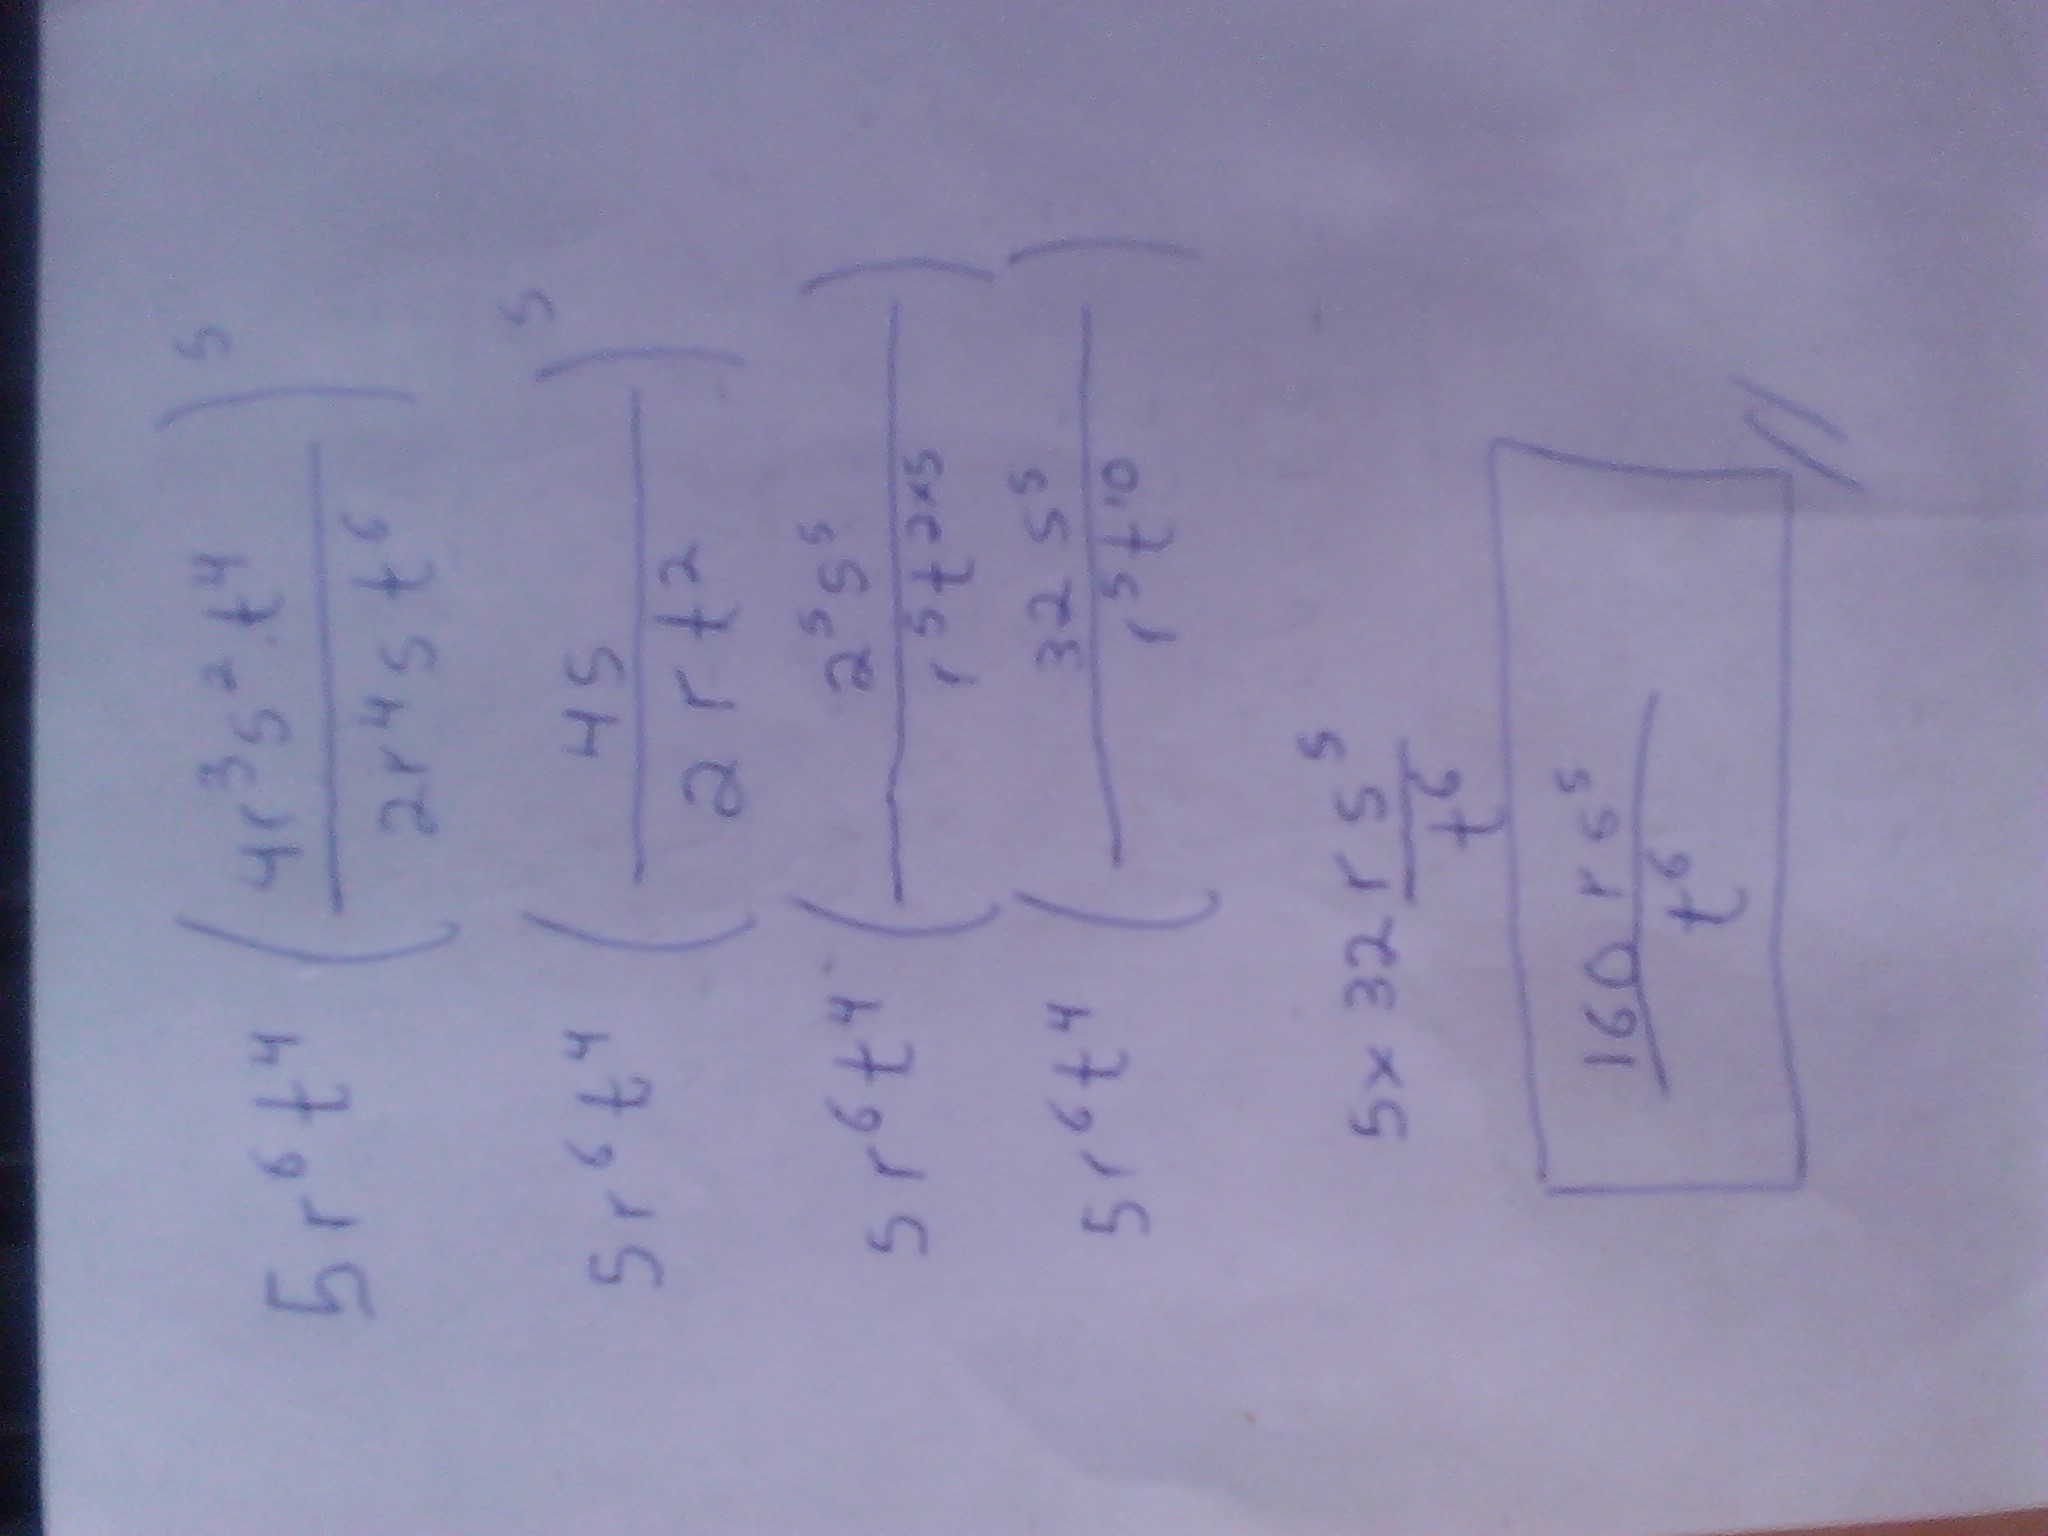 5r⁶t⁴ (4r³s².t⁴ / 2r⁴st⁶)⁵
5r⁶t⁴ (4s / 2rt²)⁵
5r⁶t⁴ (2⁵s⁵ / r⁵t²ˣ⁵)
5r⁶t⁴ (32s⁵ / r⁵t¹⁰)
5x32 rs⁵ / t⁶
160rs⁵ / t⁶